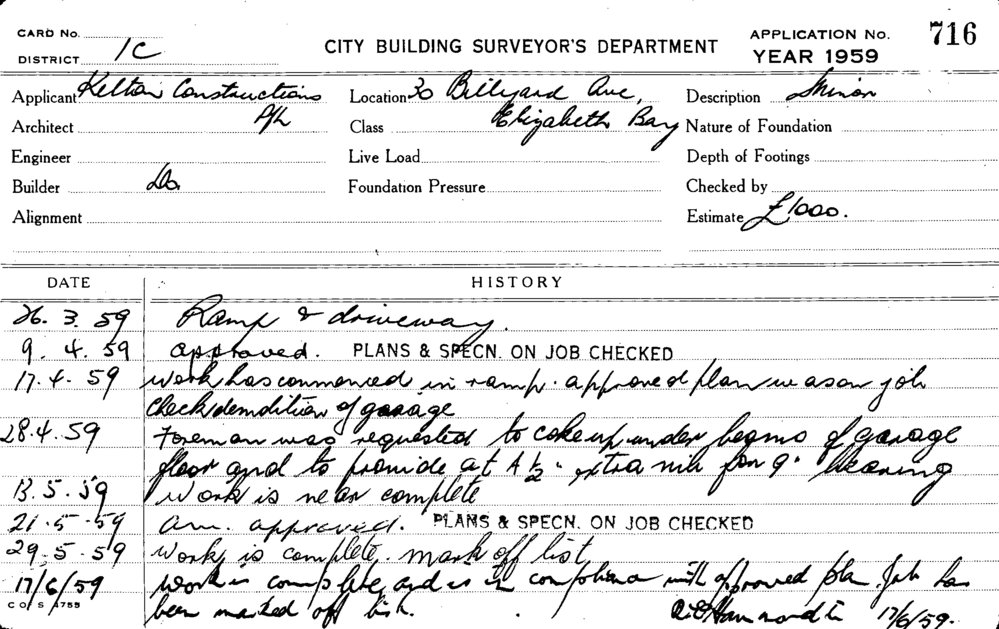 CARD No.
DISTRICT 1C
CITY BUILDING SURVEYOR'S DEPARTMENT
APPLICATION No. 716
YEAR 1959
Applicant Kelton Constructions P/L
Location 30 Billyard Ave, Elizabeth Bay
Description Minor
Architect
Class
Nature of Foundation
Engineer
Live Load
Depth of Footings
Builder Do.
Foundation Pressure
Checked by
Alignment
Estimate £1000.
DATE HISTORY
26. 3. 59 Ramp & driveway.
9. 4. 59 approved. PLANS & SPECN. ON JOB CHECKED
17. 4. 59 work has commenced in ramp. approved plan was on job
check demolition of garage
28. 4. 59 Foreman was requested to up under beams of garage
floor and to provide at 4½" extra nib for 9" bearing
13. 5. 59 work is near complete
21. 5. 59 am. approved. PLANS & SPECN. ON JOB CHECKED
29. 5. 59 work is complete. mark off list
17/6/59 work is complete and is in compliance with approved plan. Job has
been marked off list. 17/6/59.
C OF S 4755